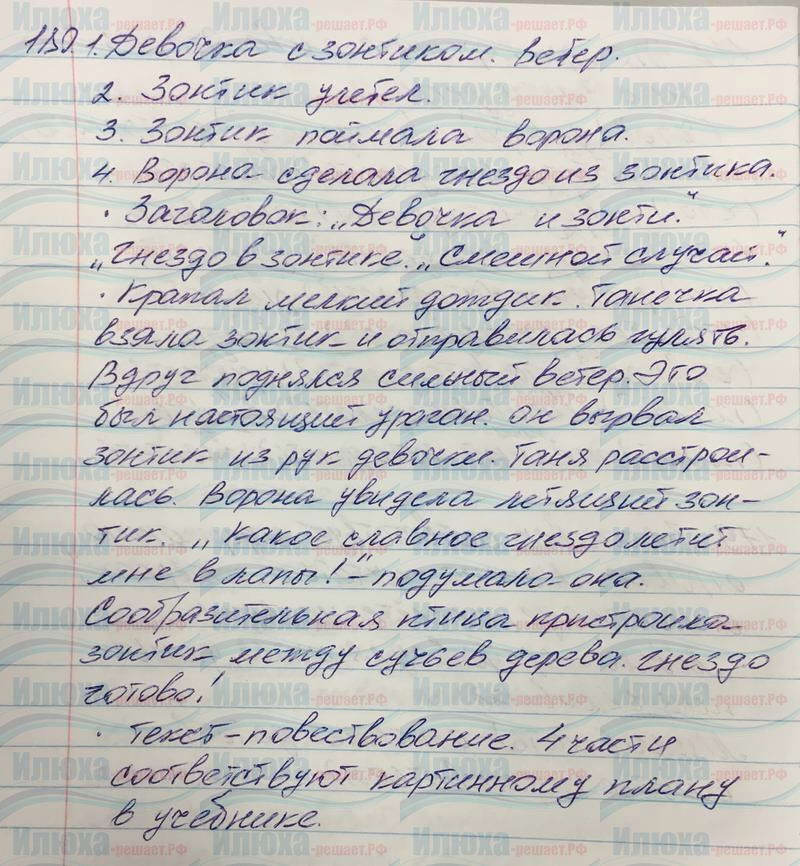 119. 1. Девочка с зонтиком. Ветер.
2. Зонтик улетел.
3. Зонтик поймала ворона.
4. Ворона сделала гнездо из зонтика.
· Заголовок: „Девочка и зонти."
„Гнездо в зонтике." „Смешной случай."
· Крапал мелкий дождик. Танечка
взяла зонтик и отправилась гулять.
Вдруг поднялся сильный ветер. Это
был настоящий ураган. Он вырвал
зонтик из рук девочки. Таня расстрои-
лась. Ворона увидела летящий зон-
тик. „Какое славное гнездо летит
мне в лапы!" – подумала она.
Сообразительная птица пристроила
зонтик между сучьев дерева. Гнездо
готово!
· Текст-повествование. 4 части
соответствуют картинному плану
в учебнике.
Илюха-решает.РФ